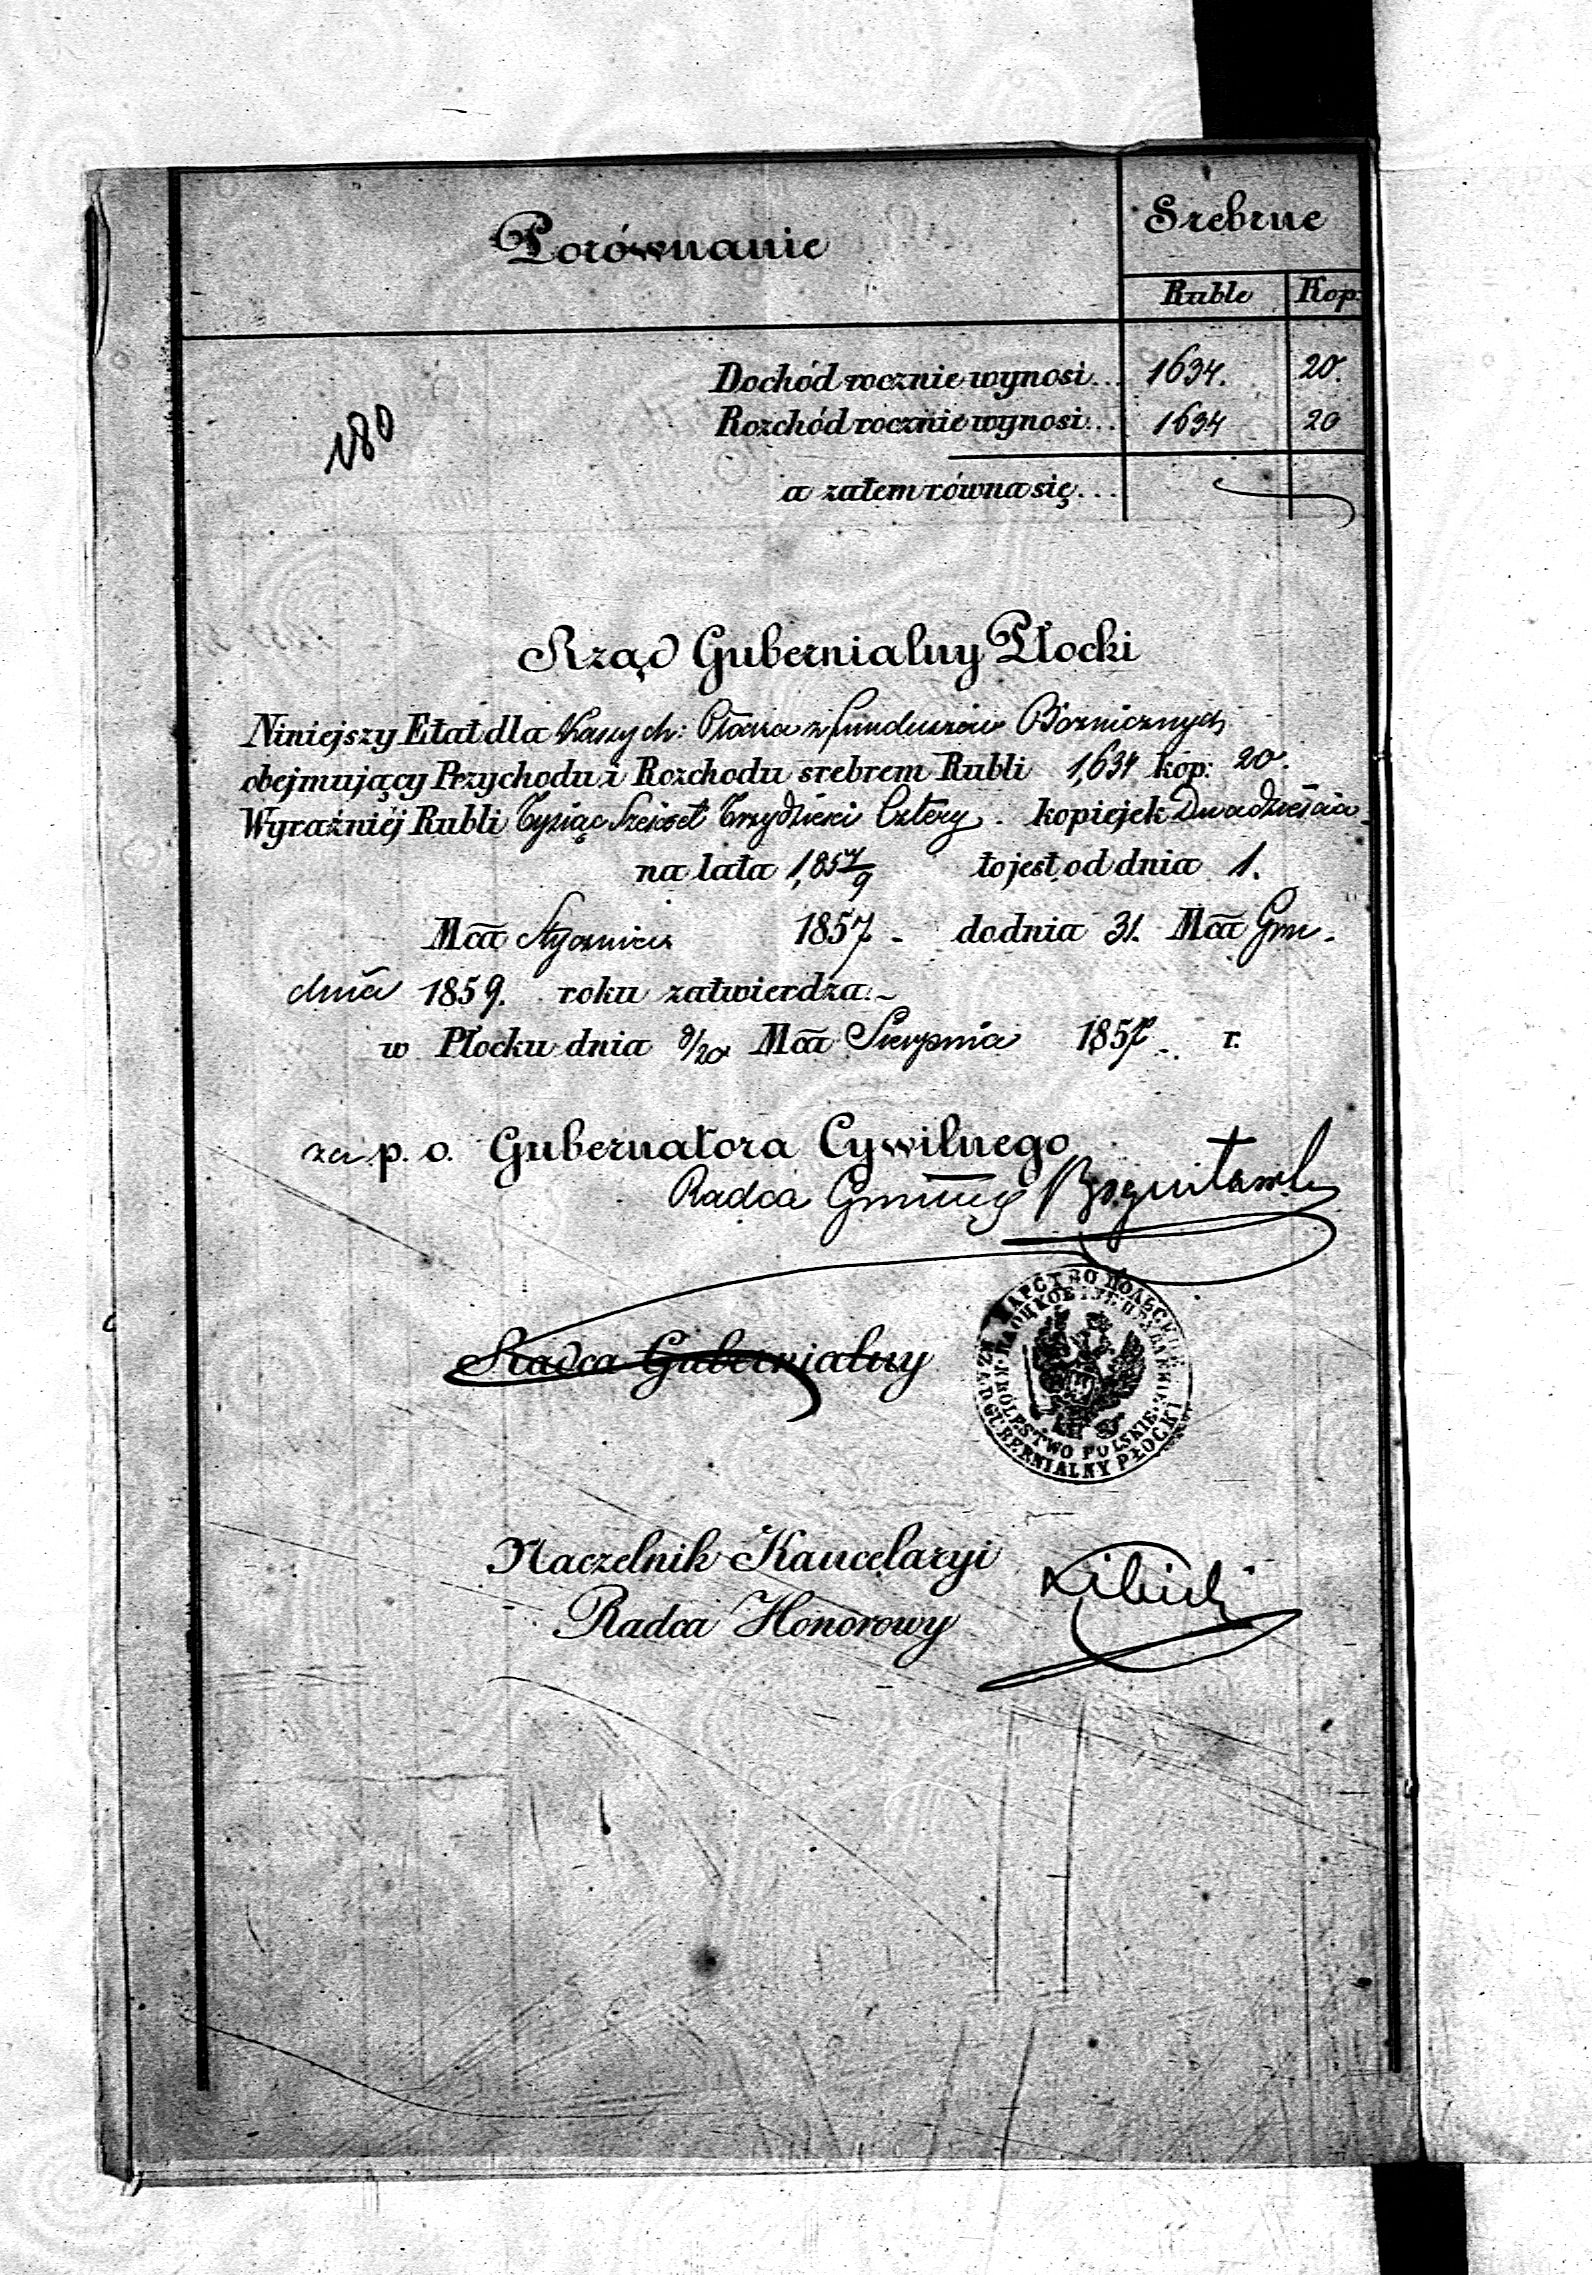 Porównanie
Srebrne
Ruble Kop.
Dochód rocznie wynosi... 1634. 20.
Rozchód rocznie wynosi... 1634 20
180
a zatem równa się...
Rząd Gubernialny Płocki
Niniejszy Etat dla Kassy m: Płocka z funduszów Bożnicznych
obejmujący Przychodu i Rozchodu srebrem Rubli 1,634 kop: 20.
Wyraźniéj Rubli Tysiąc Sześset Trzydzieści Cztery. kopiejek Dwadzieścia
na lata 1,857/9 to jest od dnia 1.
Mca Stycznia 1857. do dnia 31. Mca Gru-
dnia 1859. roku zatwierdza.~
w Płocku dnia 8/20 Mca Sierpnia 1857. r.
za p. o. Gubernatora Cywilnego
Radca
Radca Gubernialny
ЦАРСТВО ПОЛЬСКОЕ
RZĄD GUBERNIALNY PŁOCKI
KRÓLESTWO POLSKIE
Naczelnik Kancelaryi
Radca Honorowy